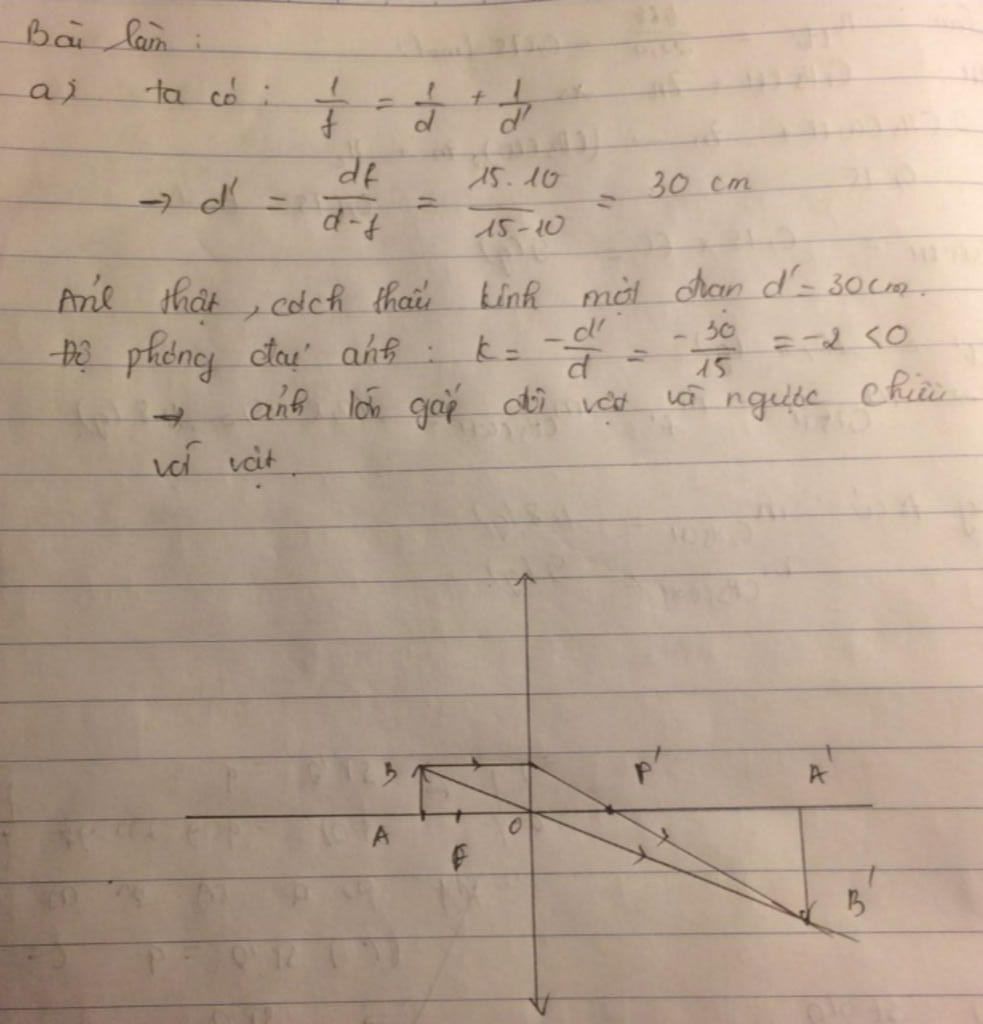 Bài làm :
a) ta có : 1/f = 1/d + 1/d'
→ d' = df/d-f = 15.10/15-10 = 30 cm
Ảnh thật, cách thấu kính một đoạn d' = 30cm.
Độ phóng đại ảnh : k = -d'/d = -30/15 = -2 < 0
→ ảnh lớn gấp đôi vật và ngược chiều
với vật.
B F' A'
A F O B'